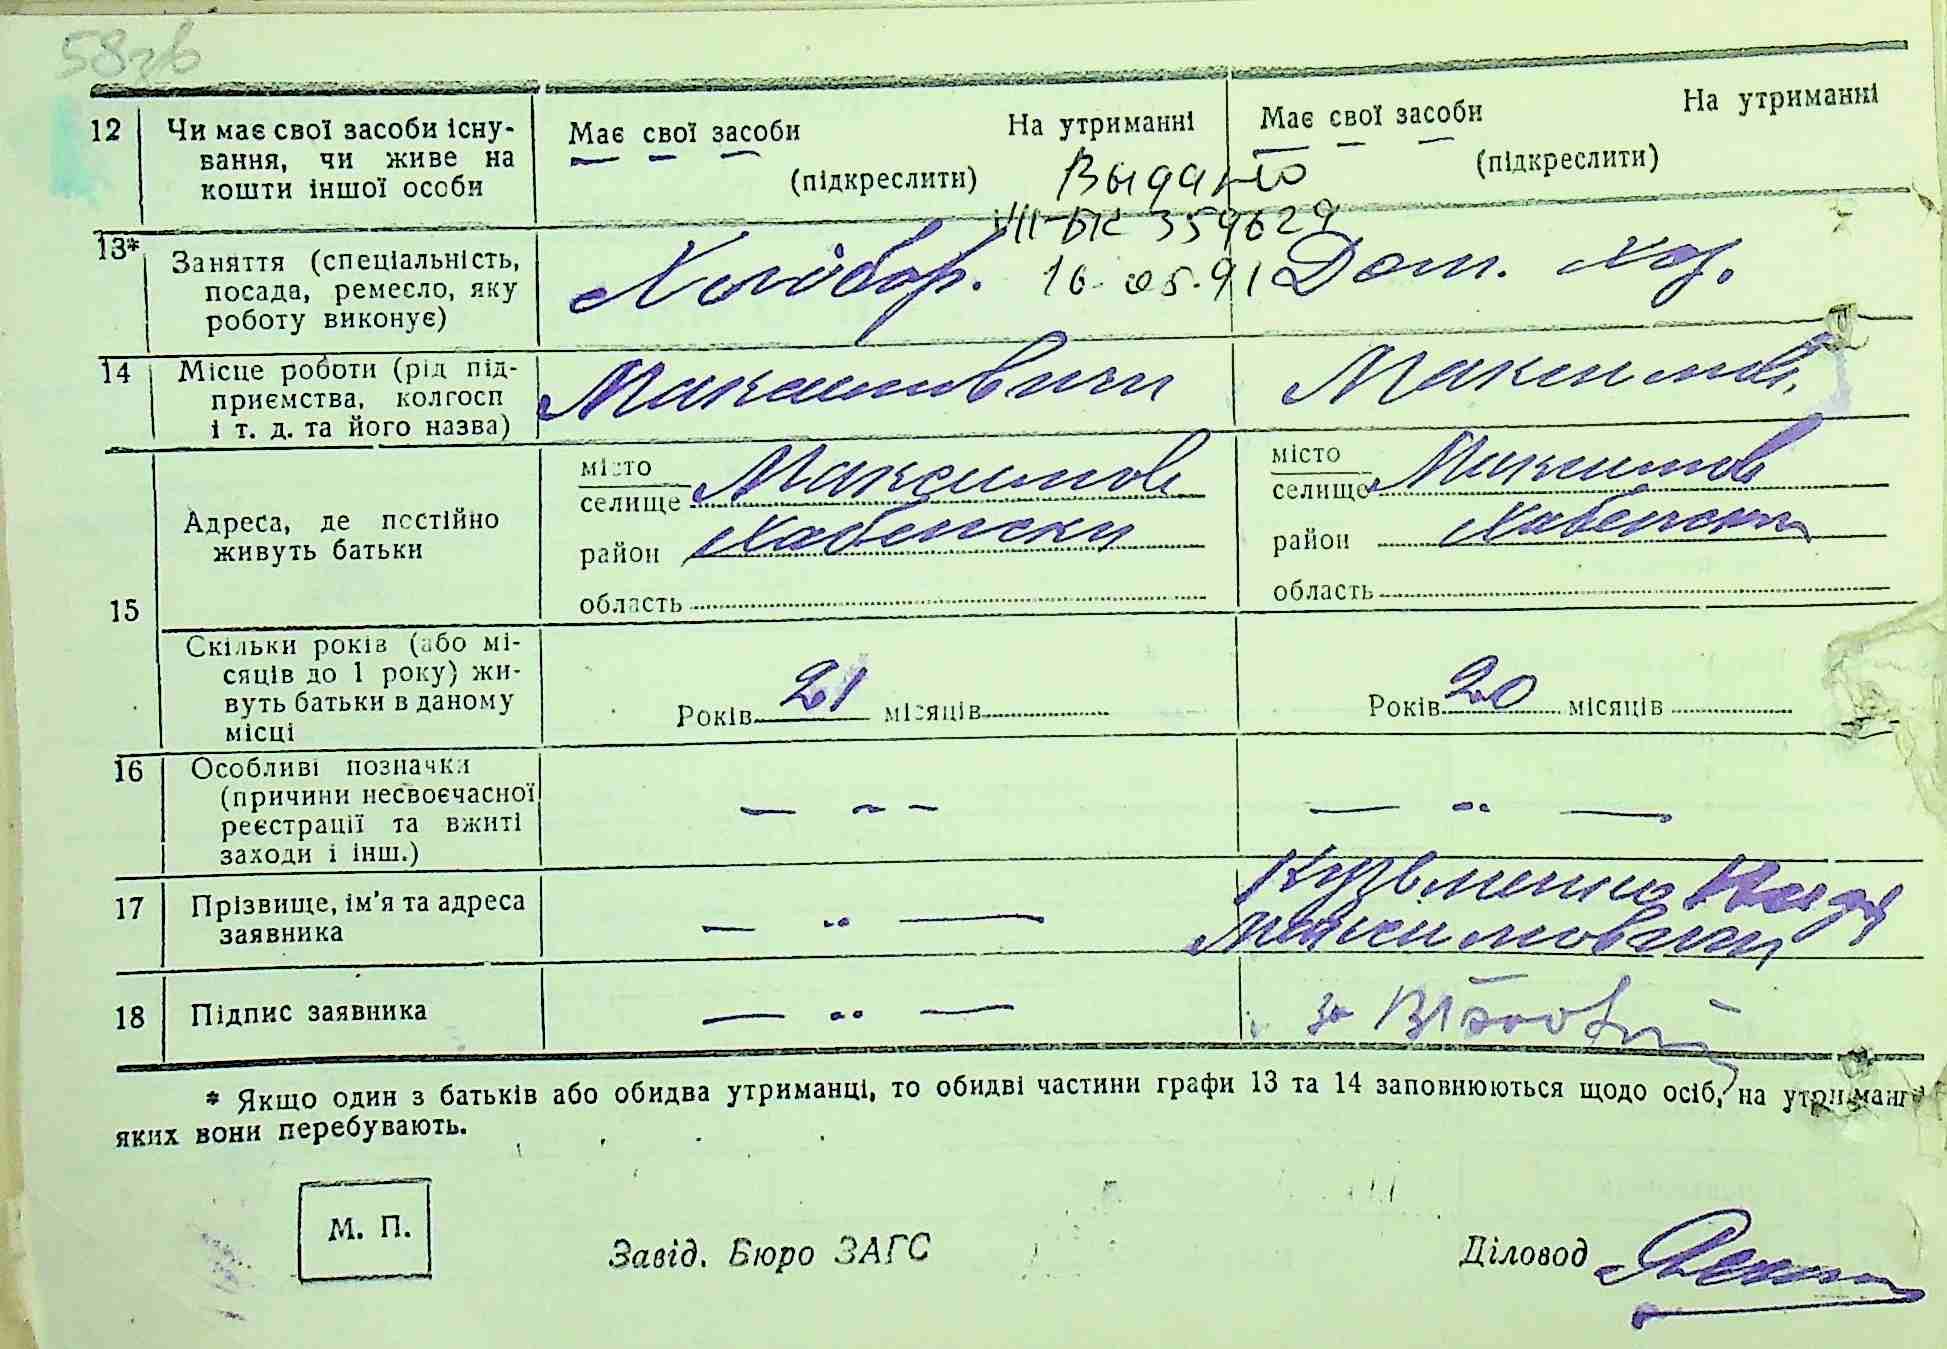 58зв
12 Чи має свої засоби існу-
вання, чи живе на
кошти іншої особи
Має свої засоби На утриманні
(підкреслити)
Має свої засоби На утриманні
(підкреслити)
Выдано
III-БК 359629
16.05.91
13* Заняття (спеціальність,
посада, ремесло, яку
роботу виконує)
Хлібор.
Дом. хоз.
14 Місце роботи (рід під-
приємства, колгосп
і т. д. та його назва)
Максимовичи
Максимов.
15
Адреса, де постійно
живуть батьки
місто
селище Максимов
район Хабенски
область
місто
селище Максимов
район Хабенски
область
Скільки років (або мі-
сяців до 1 року) жи-
вуть батьки в даному
місці
Років 21 місяців
Років 20 місяців
16 Особливі позначки
(причини несвоєчасної
реєстрації та вжиті
заходи і інш.)
— - -
— -- —
17 Прізвище, ім'я та адреса
заявника
— -- —
Кузьменко
Максимовичи
18 Підпис заявника
— -- —
за
* Якщо один з батьків або обидва утриманці, то обидві частини графи 13 та 14 заповнюються щодо осіб, на утриманні
яких вони перебувають.
М. П.
Завід. Бюро ЗАГС
Діловод